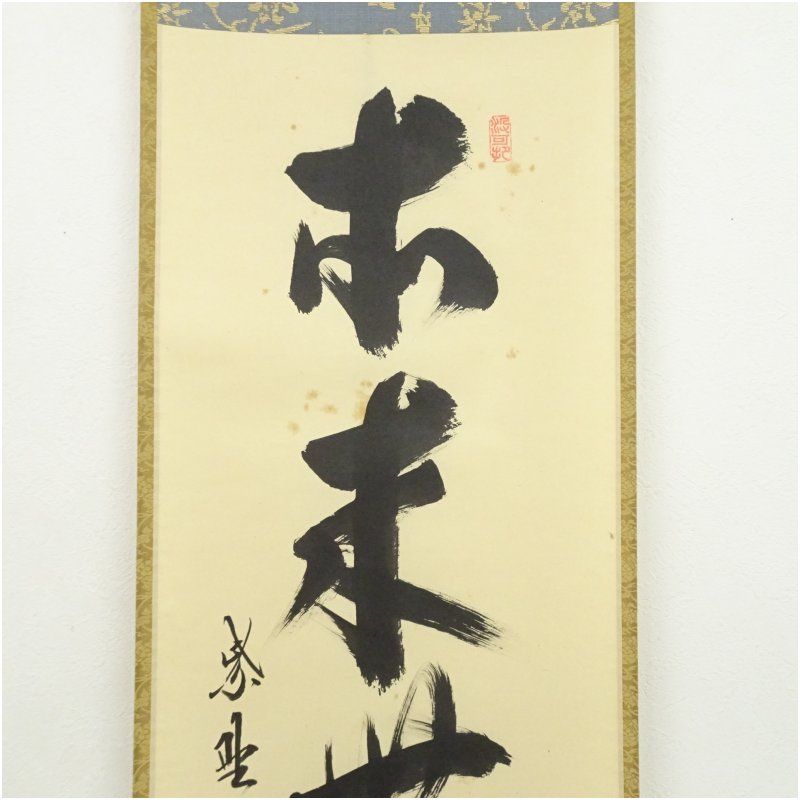 本来無
紫野